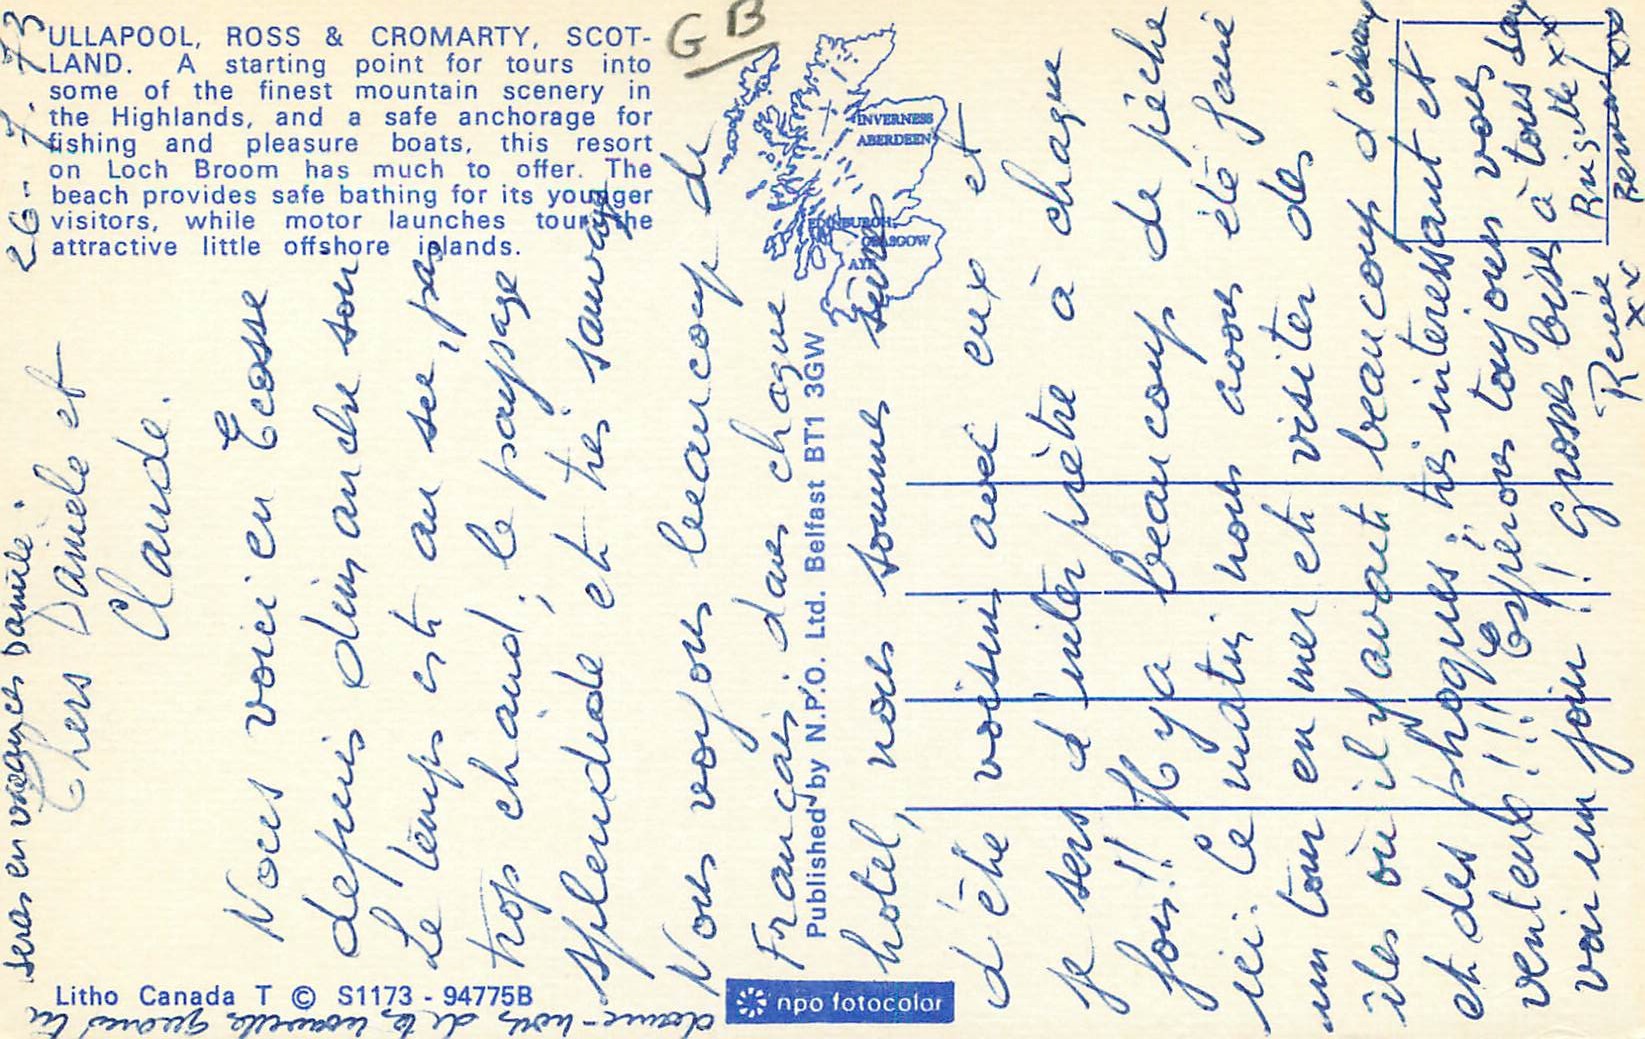 ULLAPOOL, ROSS & CROMARTY, SCOT-
LAND. A starting point for tours into
some of the finest mountain scenery in
the Highlands, and a safe anchorage for
fishing and pleasure boats, this resort
on Loch Broom has much to offer. The
beach provides safe bathing for its younger
visitors, while motor launches tour the
attractive little offshore islands.
GB
INVERNESS
ABERDEEN
EDINBURGH
GLASGOW
AYR
26-7-73
Chers Danièle et
Claude.
Nous voici en Ecosse
depuis dimanche soir
Le temps est au sec, pas
trop chaud; le paysage
splendide et très sauvage
Nous voyons beaucoup de
Français dans chaque
hotel, nous sommes surs
d'être voisins avec eux et
je sers d'interprètre à chaque
fois!! Il y a beaucoup de pèche
ici. Ce matin nous avons été faire
un tour en mer et visiter des
iles où il y avait beaucoup d'oiseaux
et des phoques; très interessant et
venteux!!! Espérons toujours vous
voir un jour! Grosses bises à tous deux
Renée
xx
Brigitte xx
Bernard xx
donne-nous de tes nouvelles quand tu
seras en vacances Danièle.
Published by N.P.O. Ltd. Belfast BT1 3GW
Litho Canada T © S1173 - 94775B
npo fotocolor